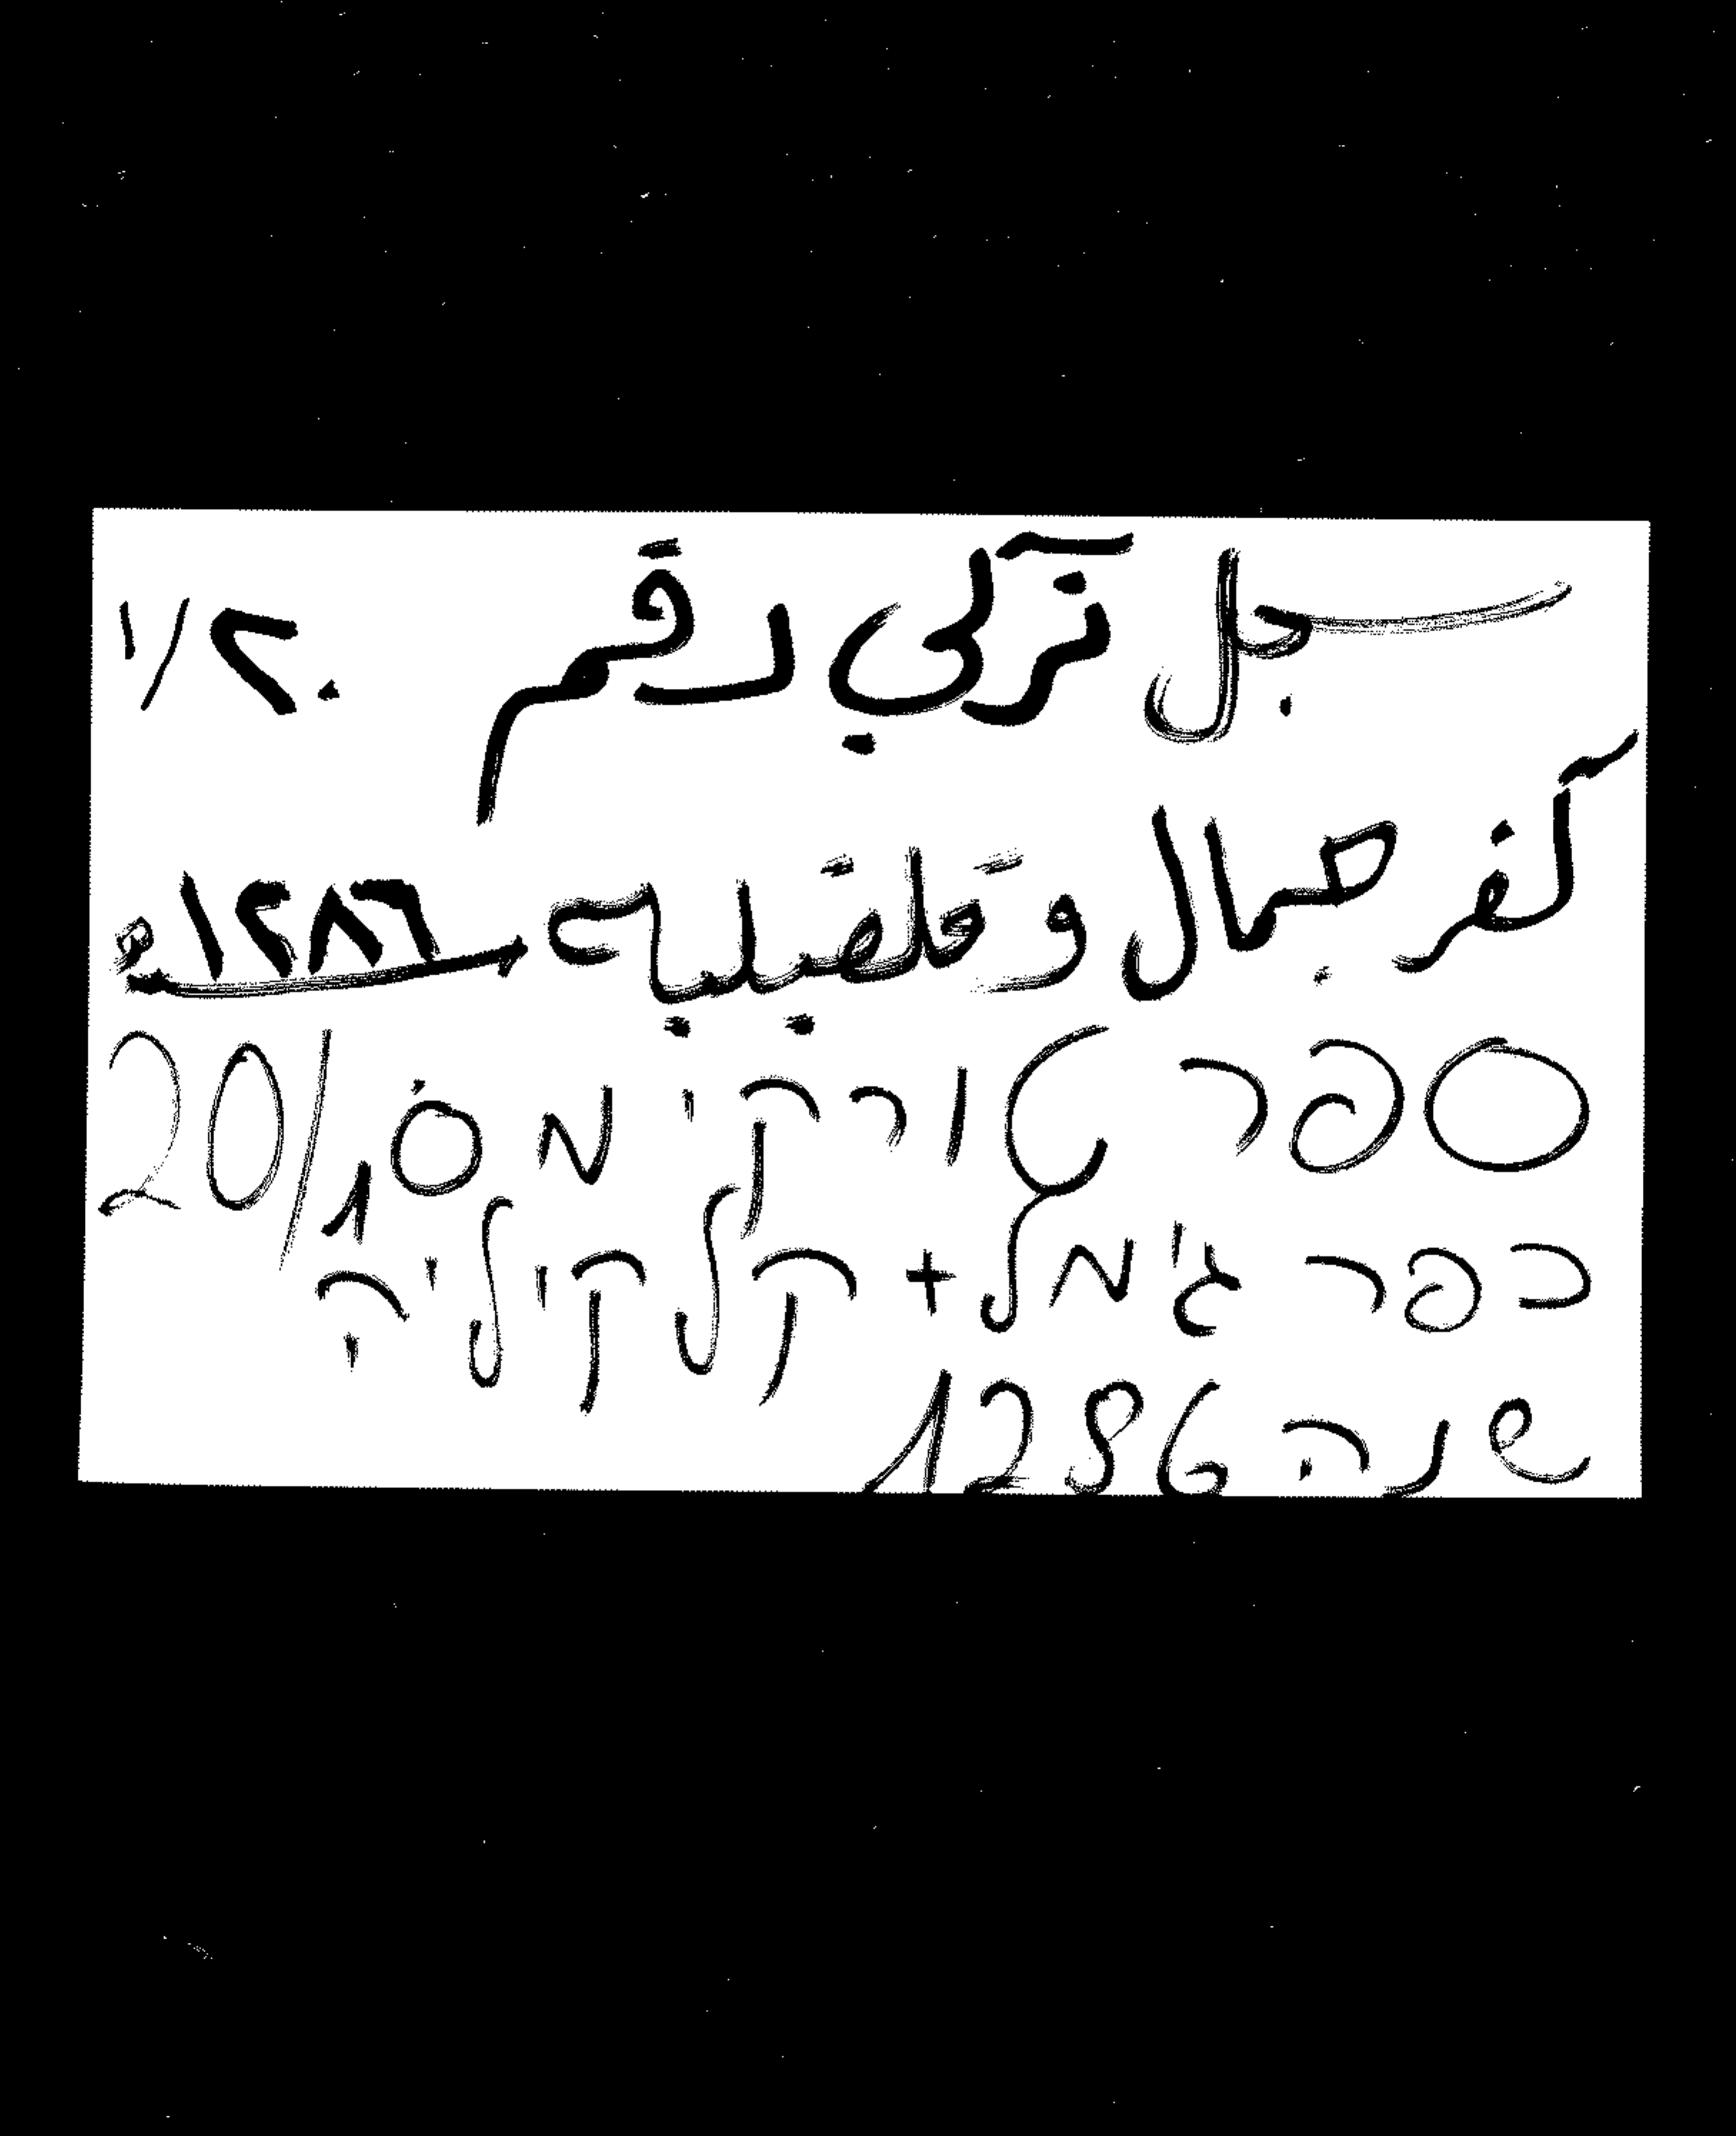 سجل تركي رقم ٢٠/١
كفر جمال وقلقيليه ١٢٨٦ هـ
ספר טורקי מס' 20/1
כפר ג'מל + קלקיליה
שנה 1286